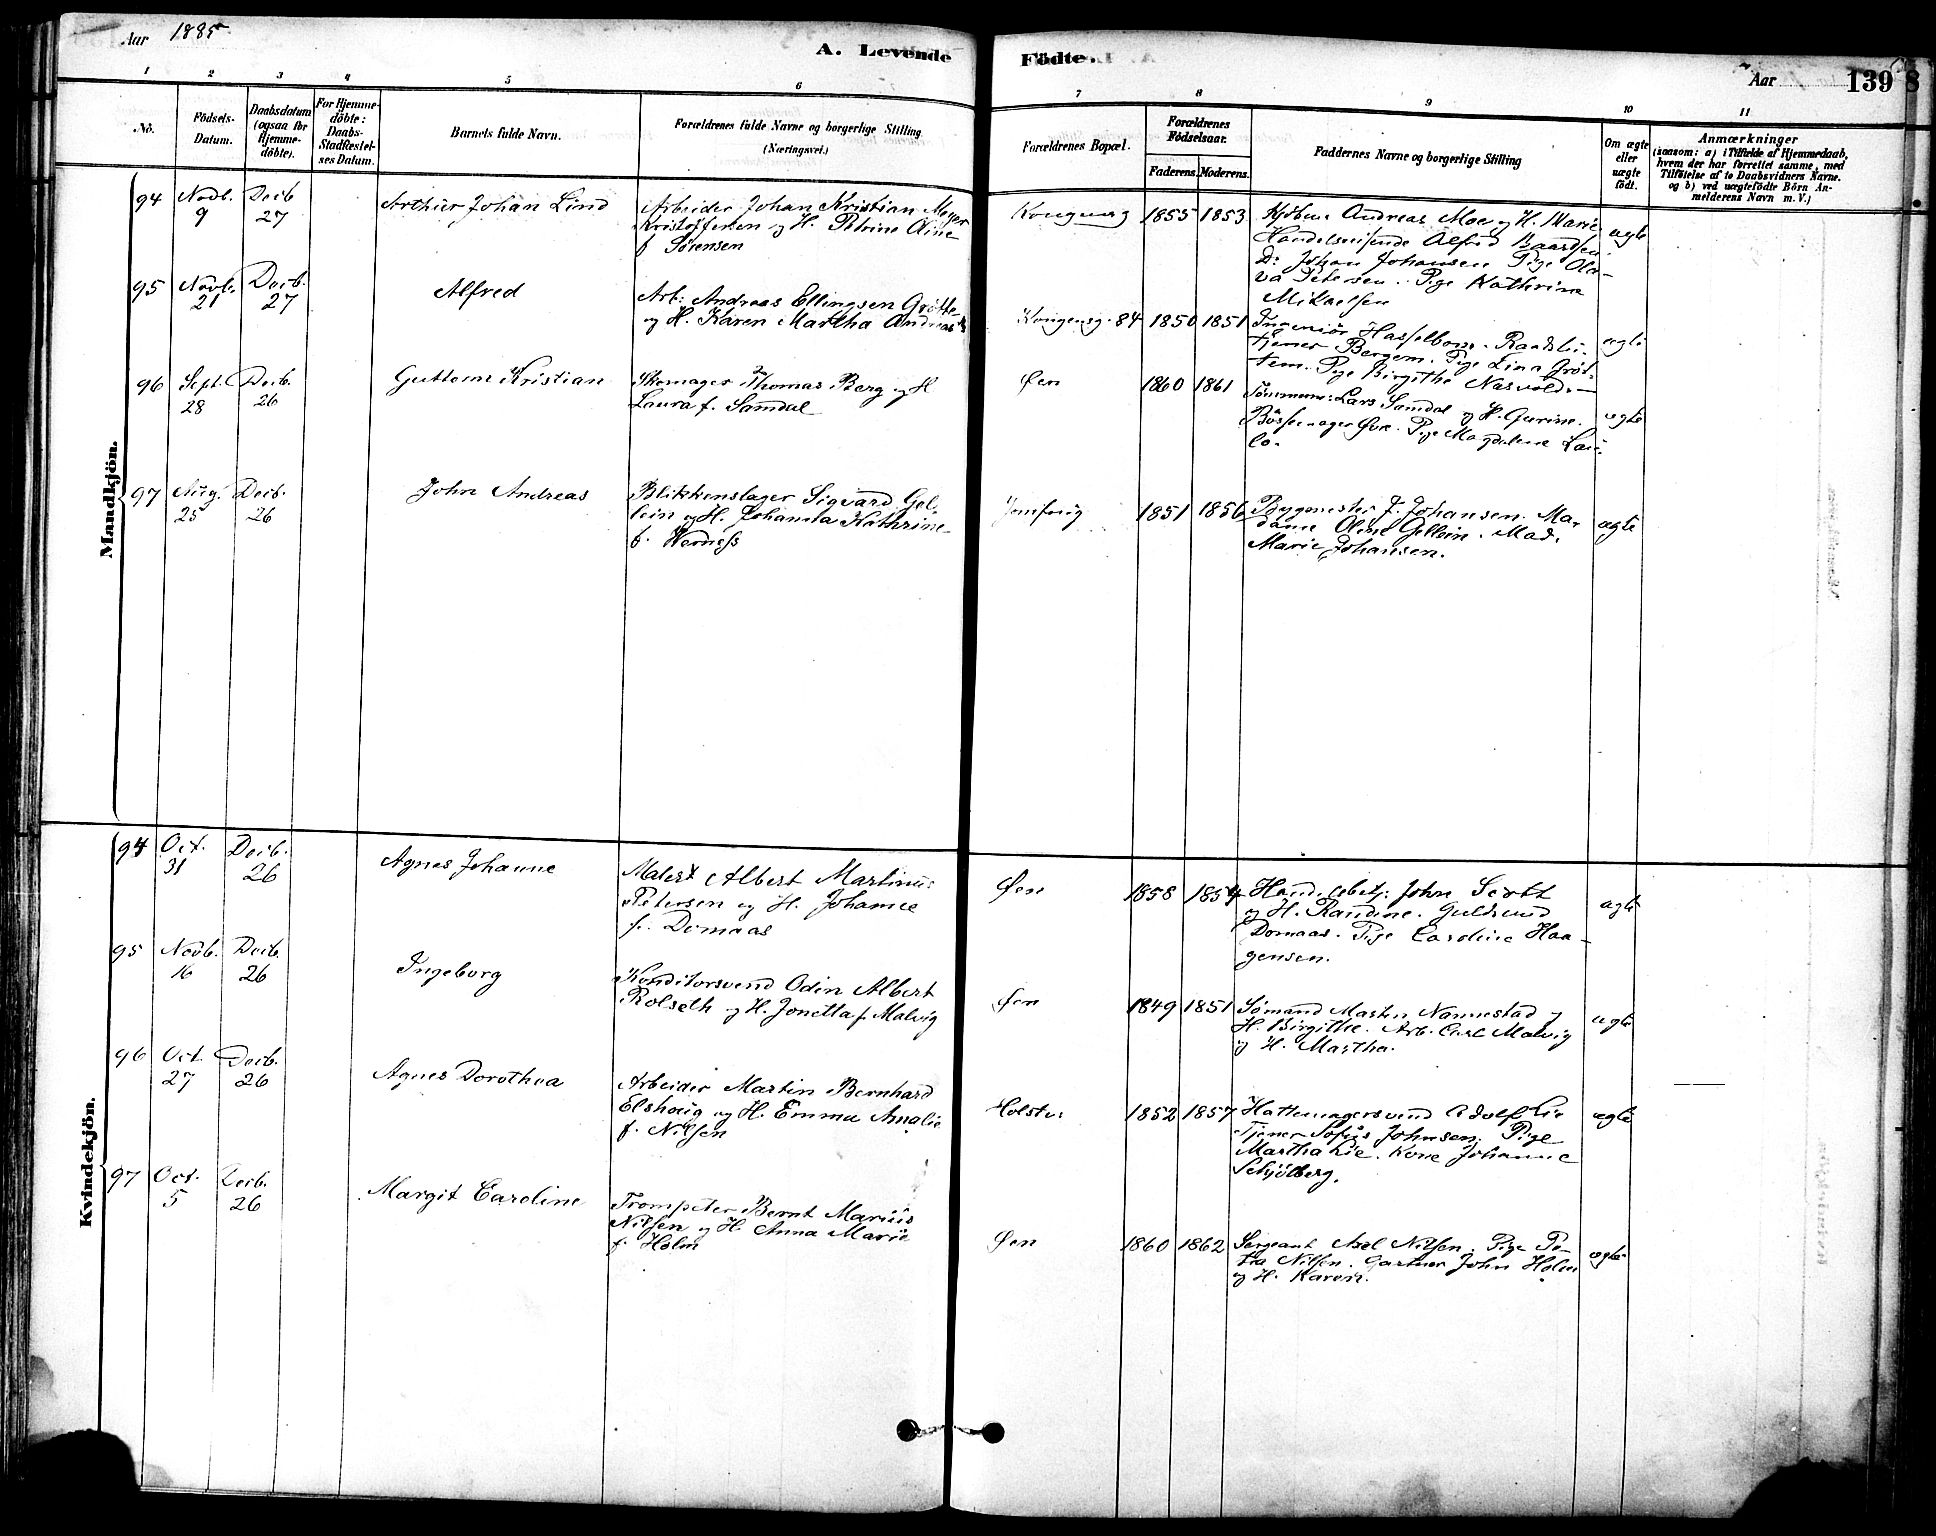 Aar 1885
A. Levende
Födte.
Aar
139
8
1 2 3 4 5 6
7 8 9 10 11
No.
Födsels-
Datum.
Daabsdatum
(ogsaa for
Hjemme-
döbte).
For Hjemme-
döbte:
Daabs-
Stadfæstel-
ses Datum.
Barnets fulde Navn.
Forældrenes fulde Navne og borgerlige Stilling
(Næringsvei.)
Forældrenes Bopæl.
Forældrenes
Födselsaar.
Faderens. Moderens.
Faddernes Navne og borgerlige Stilling
Om ægte
eller
uægte
födt.
Anmærkninger
(saasom: a) i Tilfælde af Hjemmedaab,
hvem der har forrettet samme, med
Tilföielse af to Daabsvidners Navne.
og b) ved uægtefödte Börn An-
melderens Navn m. V.)
Mandkjön.
94 Novb. 9
Decb 27
Arthur Johan Lind
Arbeider Johan Kristian Meyer
Kristoffersen og H. Petrine Oline
f. Sørensen
1855 1853
Kjøbm: Andreas Moe og H. Marie
Handelsreisende Alfred Baardsen
Do Johan Johansen Pige Ole-
va Petersen. Pige Kathrine
Mikaelsen
ægte
95 Novb. 21
Decb. 27
Alfred
Arb: Andreas Ellingsen Grötte
og H. Karen Martha Andreasd
Kongensg. 84
1850 1851
Ingeniör Hasselbom. Raadstu-
tjener Bergem. Pige Lina Gröt-
tem. Pige Birgithe Næsvold.
ægte
96 Sept. 28
Decb. 26
Guttorm Kristian
Skomager Thomas Berg og H
Laura f. Samdal
Øen
1860 1861
Tömmerm: Lars Samdal og H. Gurine.
Bössemager Øvre. Pige Magdalene
ægte
97 Aug. 25
Decb. 26
John Andreas
Blikkenslager Sigvard Gel-
lein og H. Johanna Kathrine
f. Werness
1851 1856
Bygmester J. Johansen. Ma-
dame Oline Gellein. Mad.
Marie Johansen.
ægte
Kvindekjön.
94 Oct. 31
Decb. 26
Agnes Johanne
Malers. Albert Martinus
Petersen og H. Johanne
f. Domaas
Øen
1858 1854
Handelsbetj: John
og H. Randine. Guldsmed
Domaas. Pige Caroline Haa-
gensen.
ægte
95 Novb. 16
Decb. 26
Ingeborg
Konditorsvend Odin Albert
Rolseth og H. Jonetta f. Malvig
Øen
1849 1851
Sømand Morten Nannestad og
H. Birgithe. Arb. Carl Malvig
og H. Martha.
ægte
96 Oct. 27
Decb. 26
Agnes Dorothea
Arbeider Martin Bernhard
Elshaug og H. Emma Amalie
f. Nilsen
1852 1857
Hattemagersvend Adolf Lie
Tjener Sofus Johnsen. Pige
Martha Lie. Kone Johanne
Schjölberg.
ægte
97 Oct. 5
Decb. 26
Margit Caroline
Trompeter Bernt Marius
Nilsen og H. Anna Marie
f. Holm
Øen
1860 1862
Sergeant Axel Nilsen. Pige Pe-
tra Nilsen. Gartner John Holm
og H. Karen.
ægte